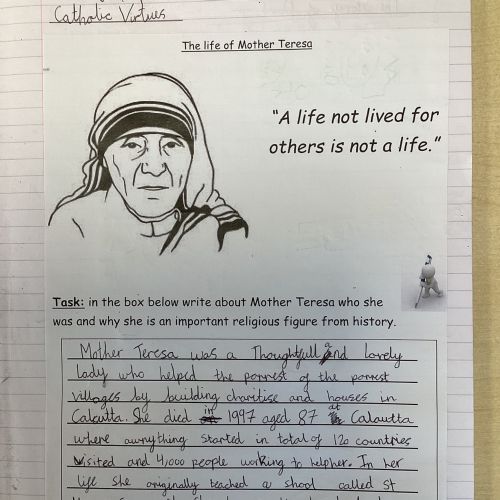 Catholic Virtues
The life of Mother Teresa
"A life not lived for
others is not a life."
Task: in the box below write about Mother Teresa who she
was and why she is an important religious figure from history.
Mother Teresa was a Thoughtfull and lovely
lady who helped the porrest of the porrest
villages by building charitise and houses in
Calcutta. She died in 1997 aged 87 at Calautta
where awnything started in total of 120 countries
visited and 4,000 people working to help her. In her
life she originally teached a shool called St